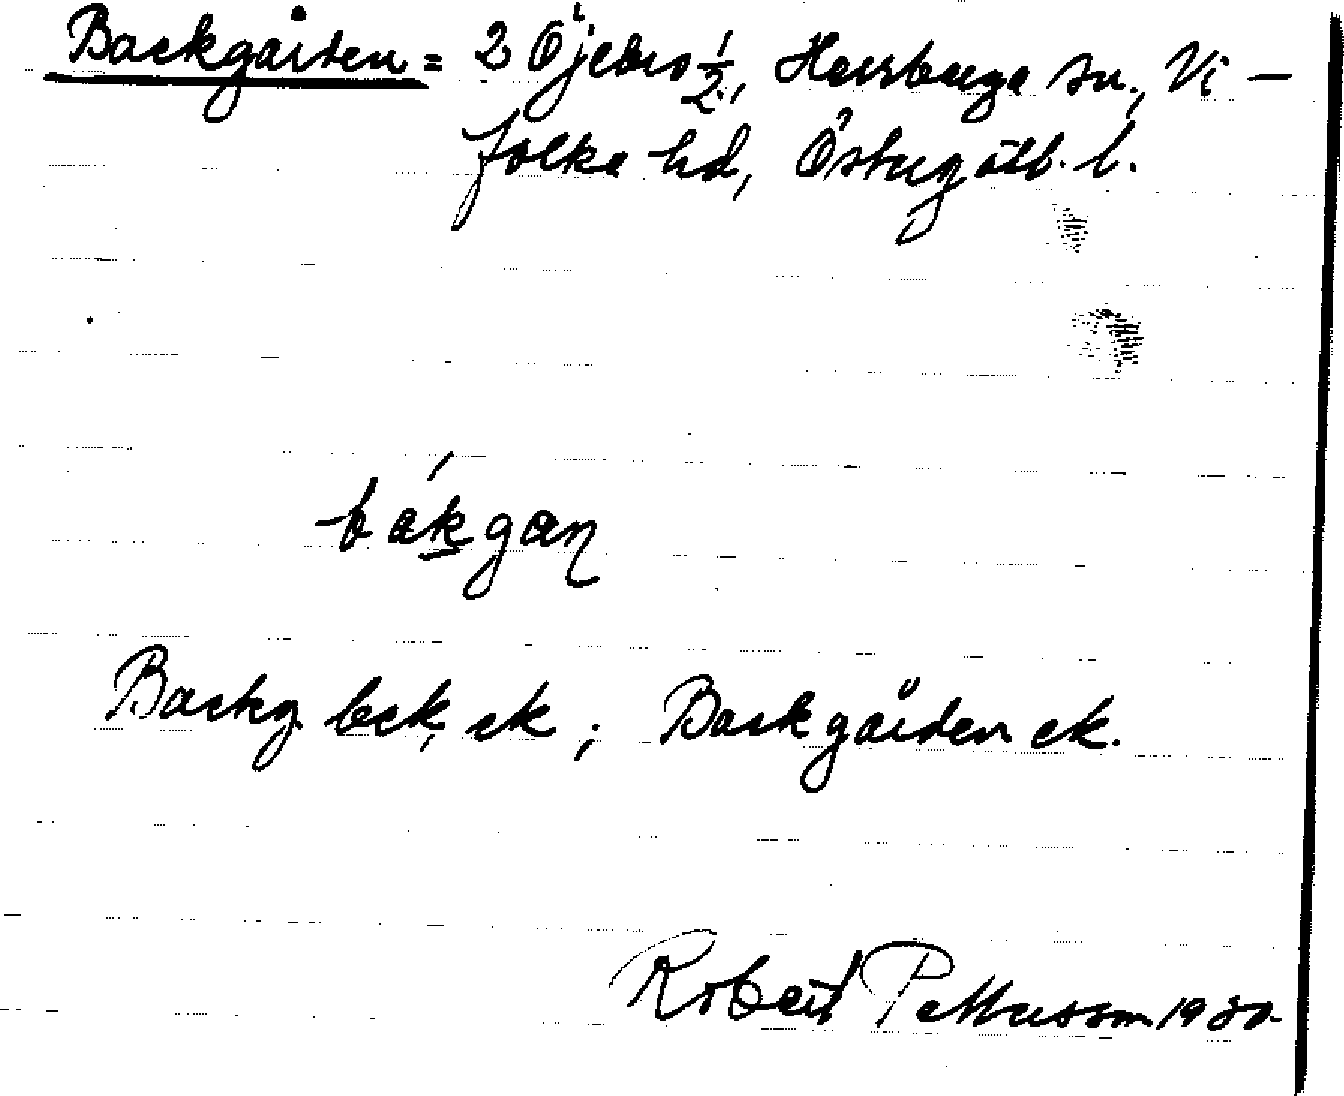 Backgården = 2 Öjebro 1/2, Herrberga sn, Vi-
folka hd, Östergötl. l.
bákgan
Backg. bek, ek; Backgården ek.
Robert Pettersson 1930